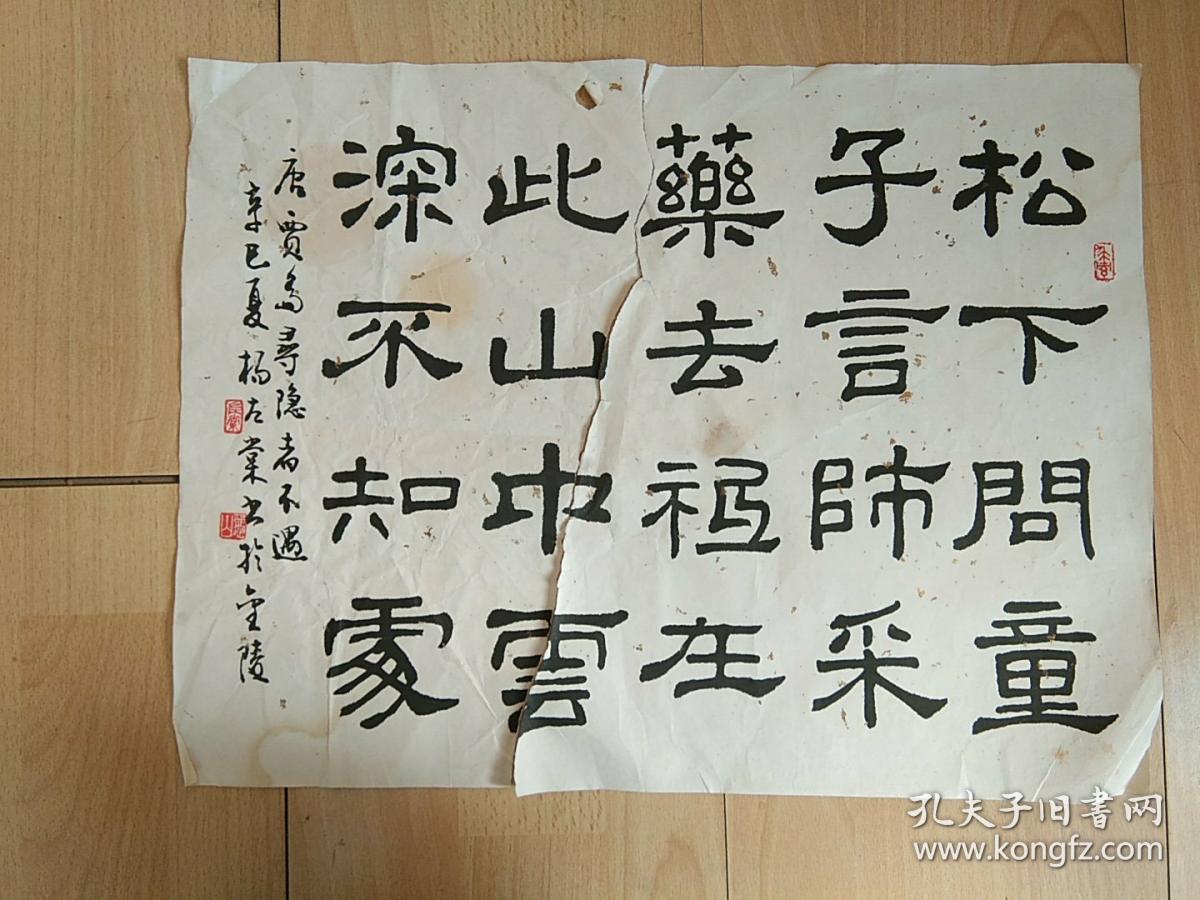 松下問童
子言師采
藥去祗在
此山中雲
深不知處
唐賈島尋隐者不遇
辛巳夏楊左棠书於金陵
孔夫子旧书网
www.kongfz.com